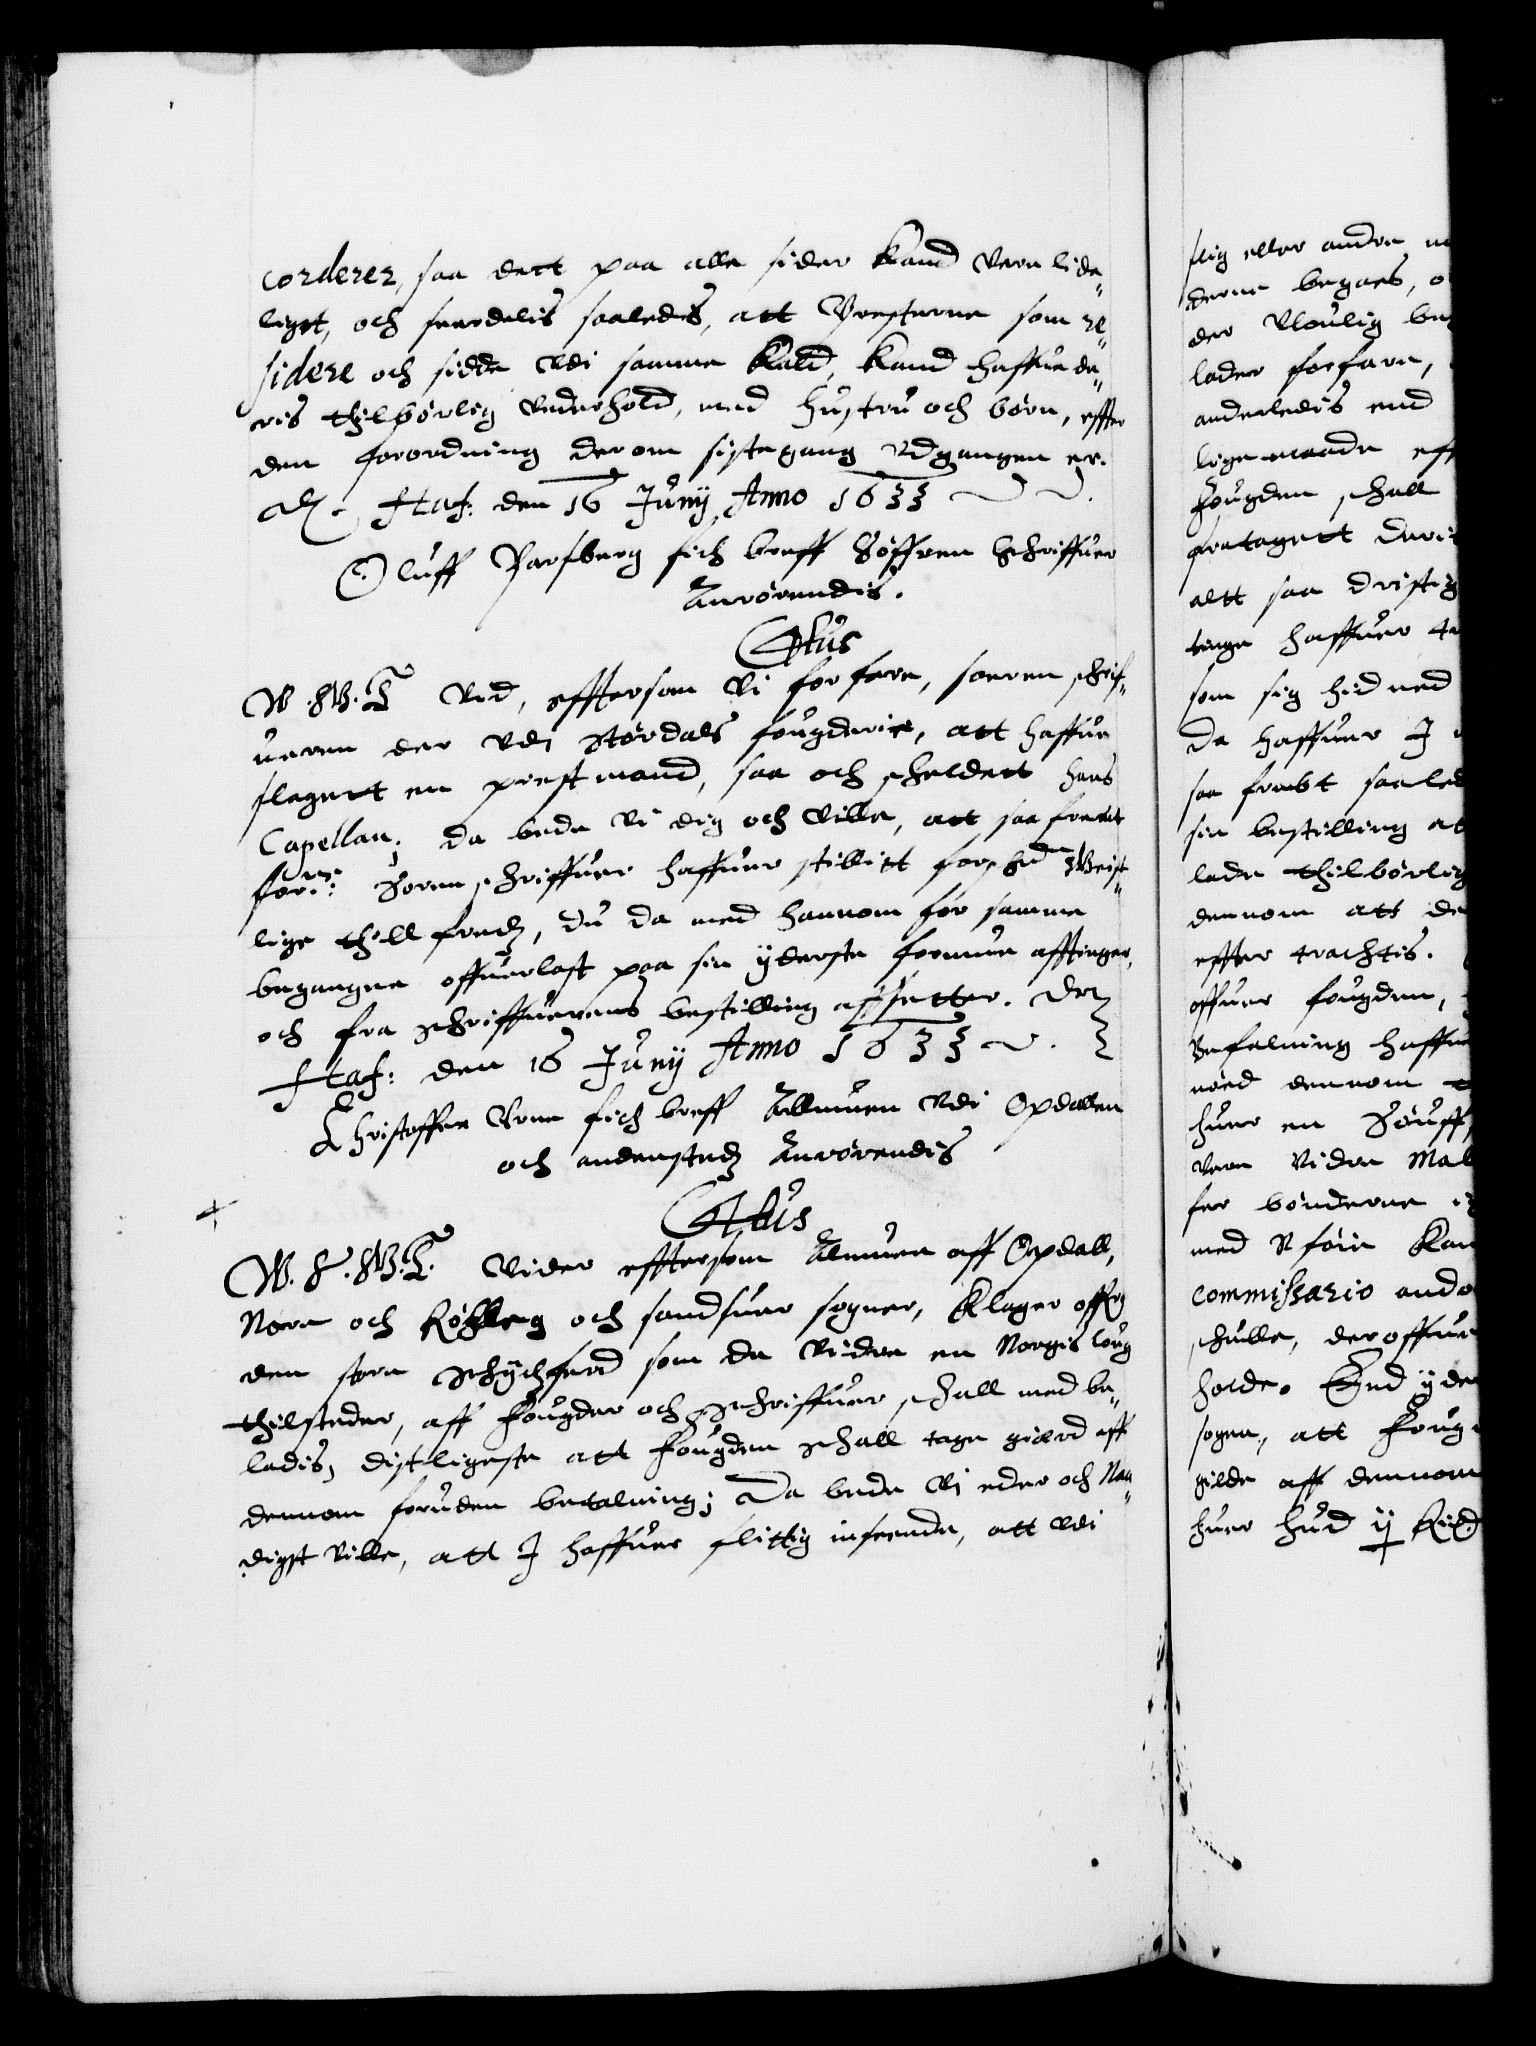 corderer, saa dett paa alle sider kand vere lide„
ligt, och serdelis saaledis, att Presterne som re„
sidere och sidde vdi samme kald, kand haffue de„
ris thilbørlig vnderhold, med hustru och børn, effter
den forordning derom sistegang vdgangen er.
Haf: den 16 Junij Anno 1633
Oluff Parsberg fich breff Søffren Schriffuer
Anrørendis.
C4tus
W.G.T. Vid, efftersom Vi forfare, soeren schrif„
ueren der vdi Størdals fougderie, att haffue
slagett en prestmand, saa och scheldett hans
Capellan; da bede Vi dig och ville, att saa fremt
for.ne: Soren schriffuer haffuer stillitt forschr.ne Geist„
lige thill fredz, du da med hannom for samme
begangne offuerlast paa sin yderste formue afftinger,
och fra schriffuerens bestilling affsetter. Der
Haf: den 16 Junij Anno 1633
Christoffer Vrne fich breff Allmuen vdi Opdallen
och andenstedz Anrørendis
C4tus
W.G.T. Vider efftersom Almuen aff Opdall,
Nore och Rølleg och sandsuer sogner, klager offuer
den store schydtzferd som de videre en Norgis loug
thilsteder, aff fougder och schriffuer schall med be„
ladis, disligeste att fougden schall tage giærd aff
dennom foruden betalning; Da bede Vi eder och Naa„
digst ville, att J haffuer flittig inseende, att vdi
slig eller andre
derne begaes,
der Vloulig
lader forfare,
anderledis end
lige maade
fougden schall
fratagett
altt saa dristig
tinge haffuer
som sig hid ned
Da haffuer J
saa frembt
sin bestilling
lade thilbørlig
dennom att de
effter trachtis.
offuer fougden,
Befalning
nød dennom
huer en
vere videre
for bønderne
med
commissario
schulle, der offuer
holde. End yder
sogen, att foug
gilde aff dennom
huer hud